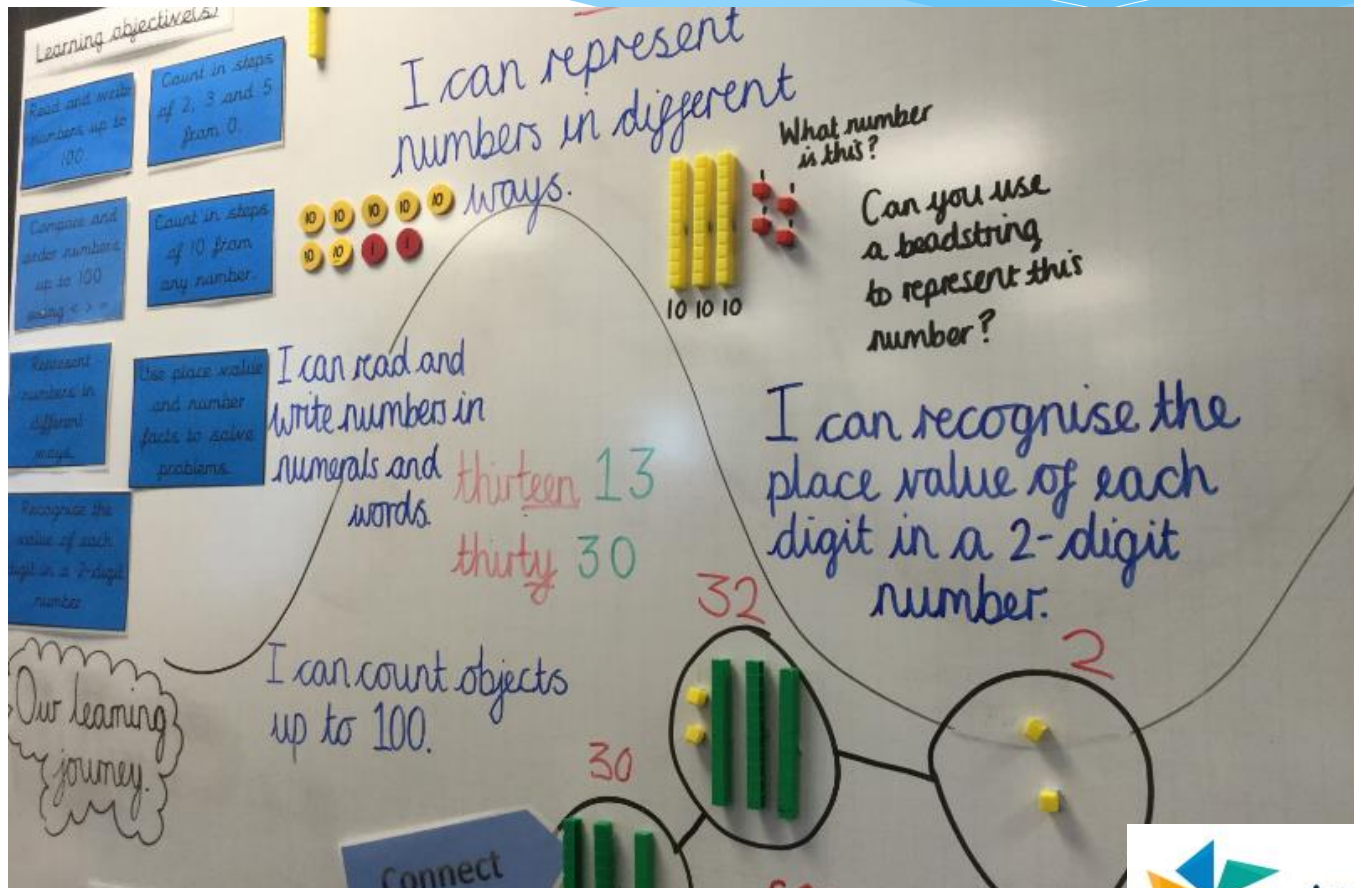 Learning objective(s)
Read and write
numbers up to
100.
Count in steps
of 2, 3 and 5
from 0.
Compare and
order numbers
up to 100
using < > =
Count in steps
of 10 from
any number.
Represent
numbers in
different
ways.
Use place value
and number
facts to solve
problems.
Recognise the
value of each
digit in a 2-digit
number.
Our learning
journey.
I can represent
numbers in different
ways.
10 10 10 10 10
10 10 1 1
What number
is this?
1 1
1 1
10 10 10
Can you use
a beadstring
to represent this
number?
I can read and
write numbers in
numerals and
words.
thirteen 13
thirty 30
I can recognise the
place value of each
digit in a 2-digit
number.
I can count objects
up to 100.
32
2
30
Connect